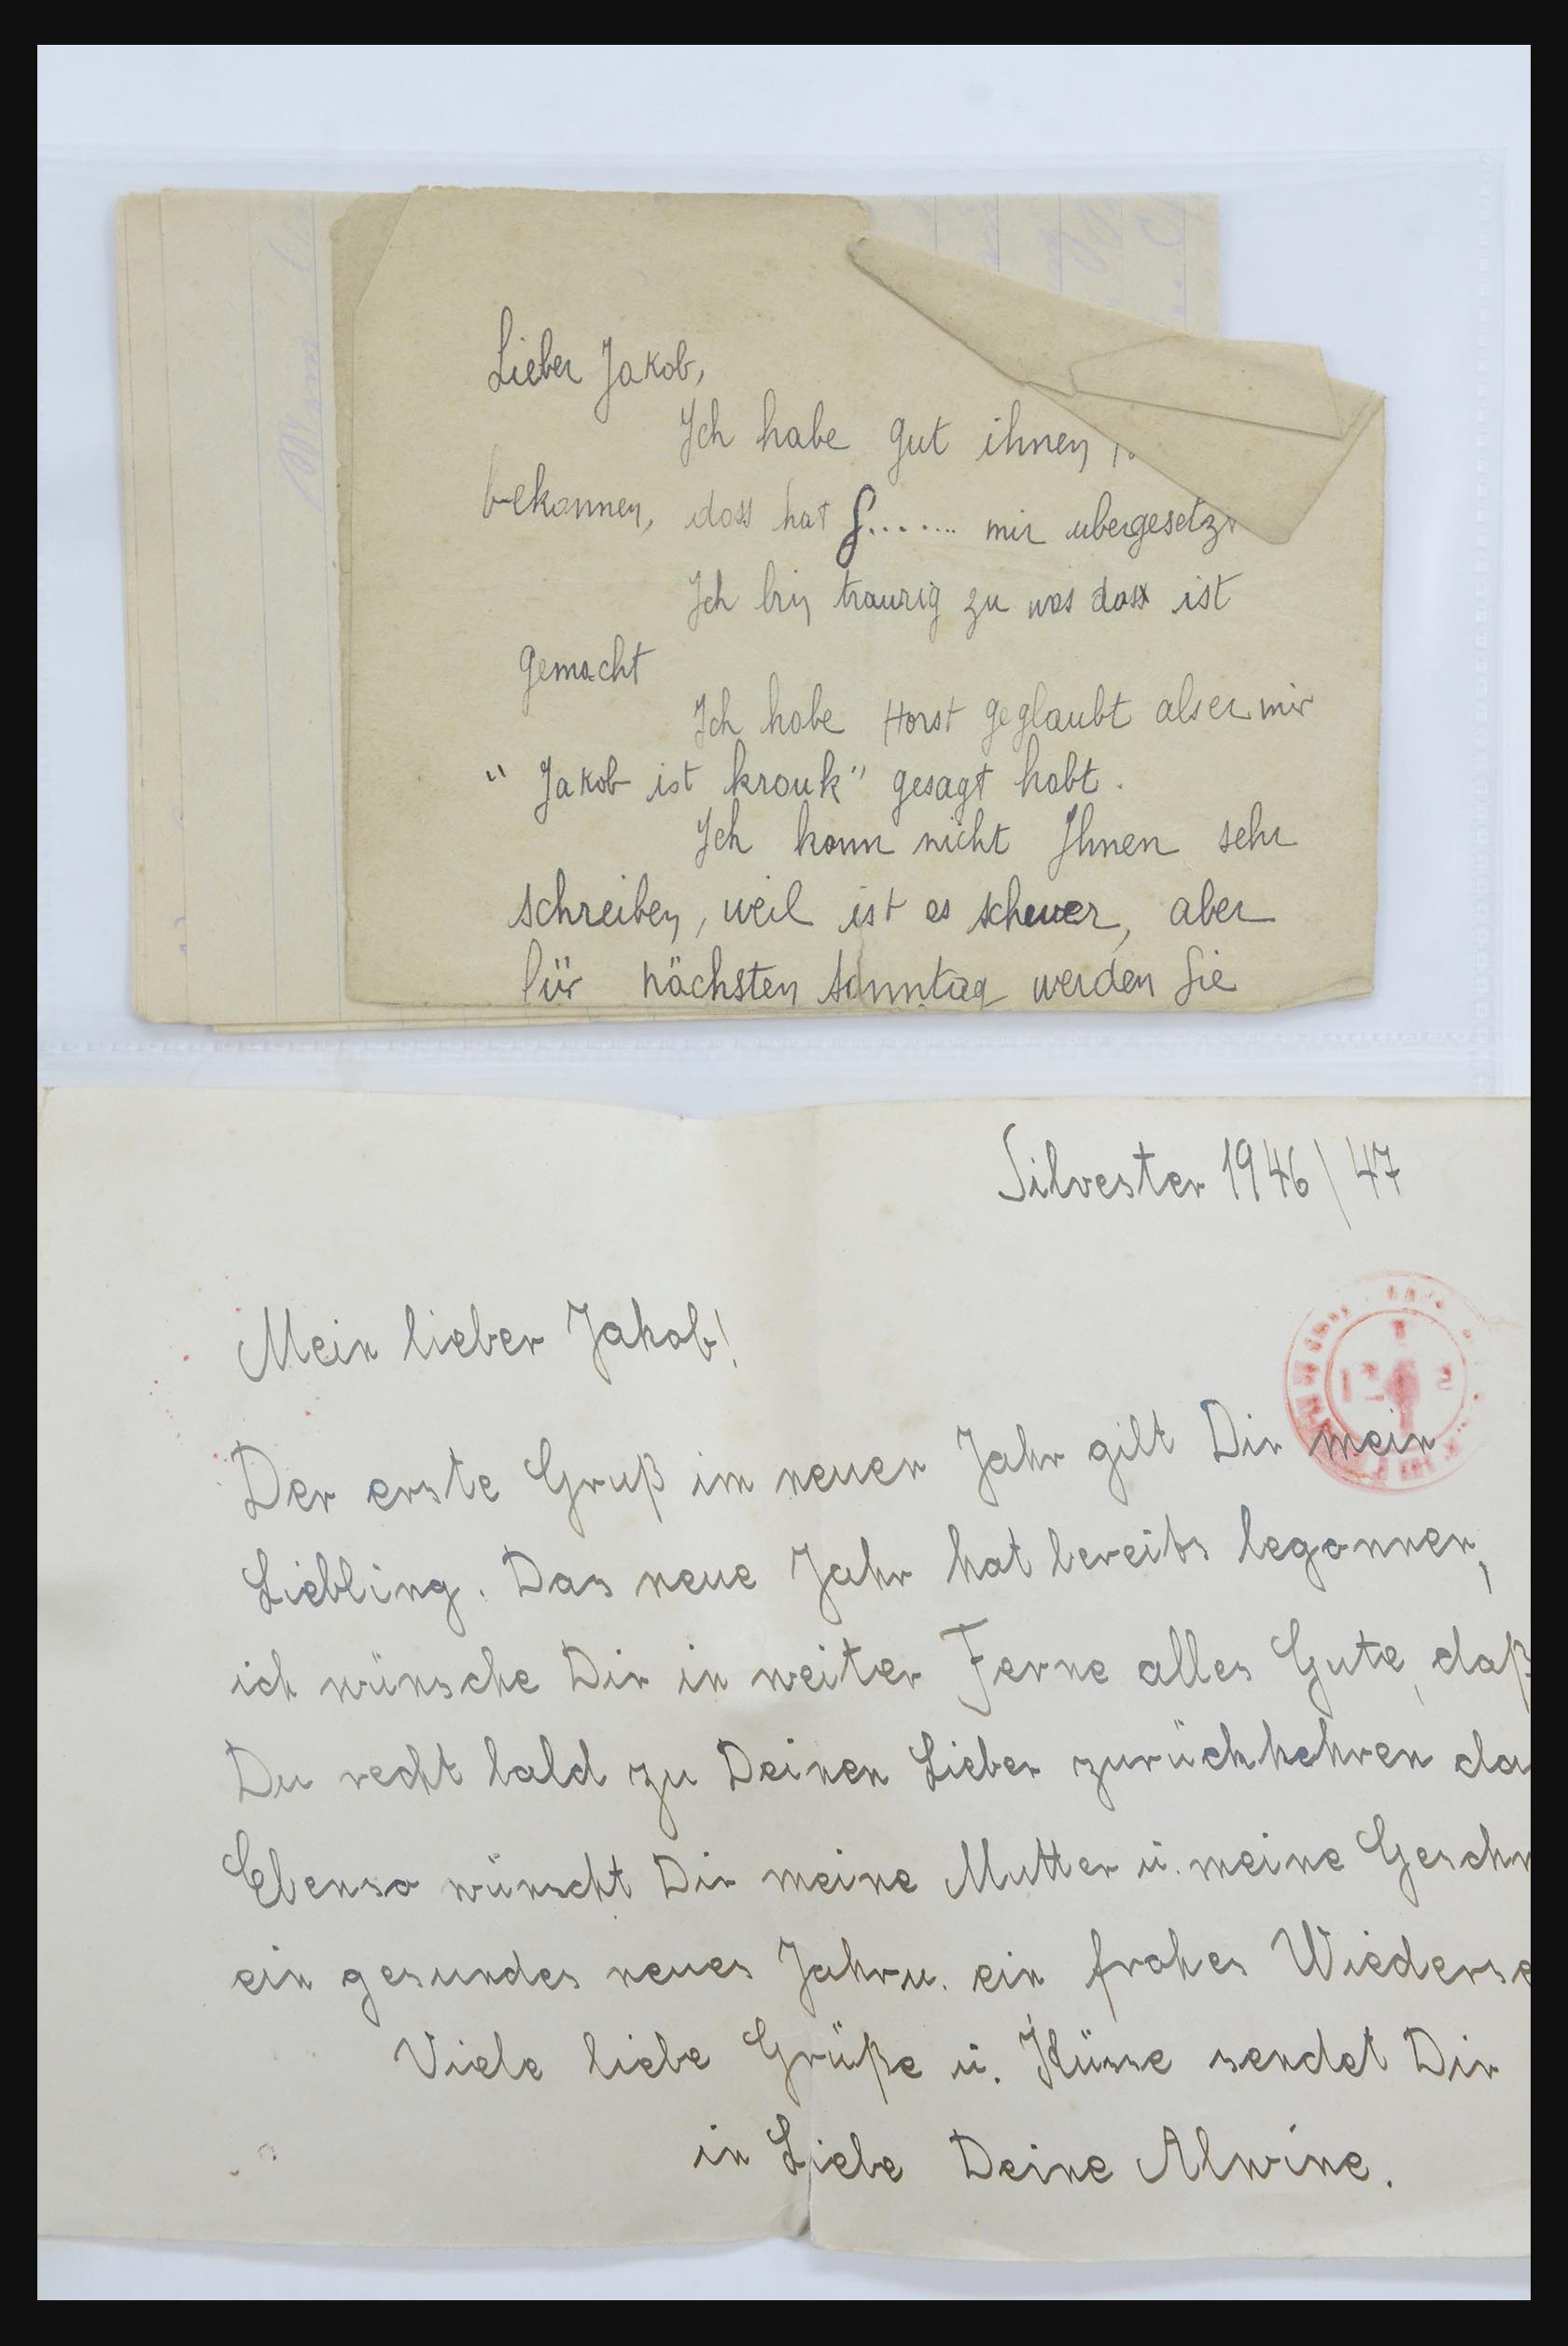 Lieber Jakob,
Ich habe gut ihnen
bekommen, doss hat S....... mir ubergesetzt
Ich bin traurig zu was dass ist
gemacht
Ich habe Horst geglaubt als er mir
" Jakob ist krouk" gesagt habt.
Ich kann nicht Ihnen sehr
schreiben, weil ist es schwer, aber
für nächsten Sonntag werden Sie
Silvester 1946/47
Mein lieber Jakob!
Der erste Gruß im neuen Jahr gilt Dir mein
Liebling. Das neue Jahr hat bereits begonnen,
ich wünsche Dir in weiter Ferne alles Gute, daß
Du recht bald zu Deinen Lieben zurückkehren da
Ebenso wünscht Dir meine Mutter u. meine Geschw
ein gesundes neues Jahr u. ein frohes Wiederse
Viele liebe Grüße u. Küsse sendet Dir
in Liebe Deine Alwine.